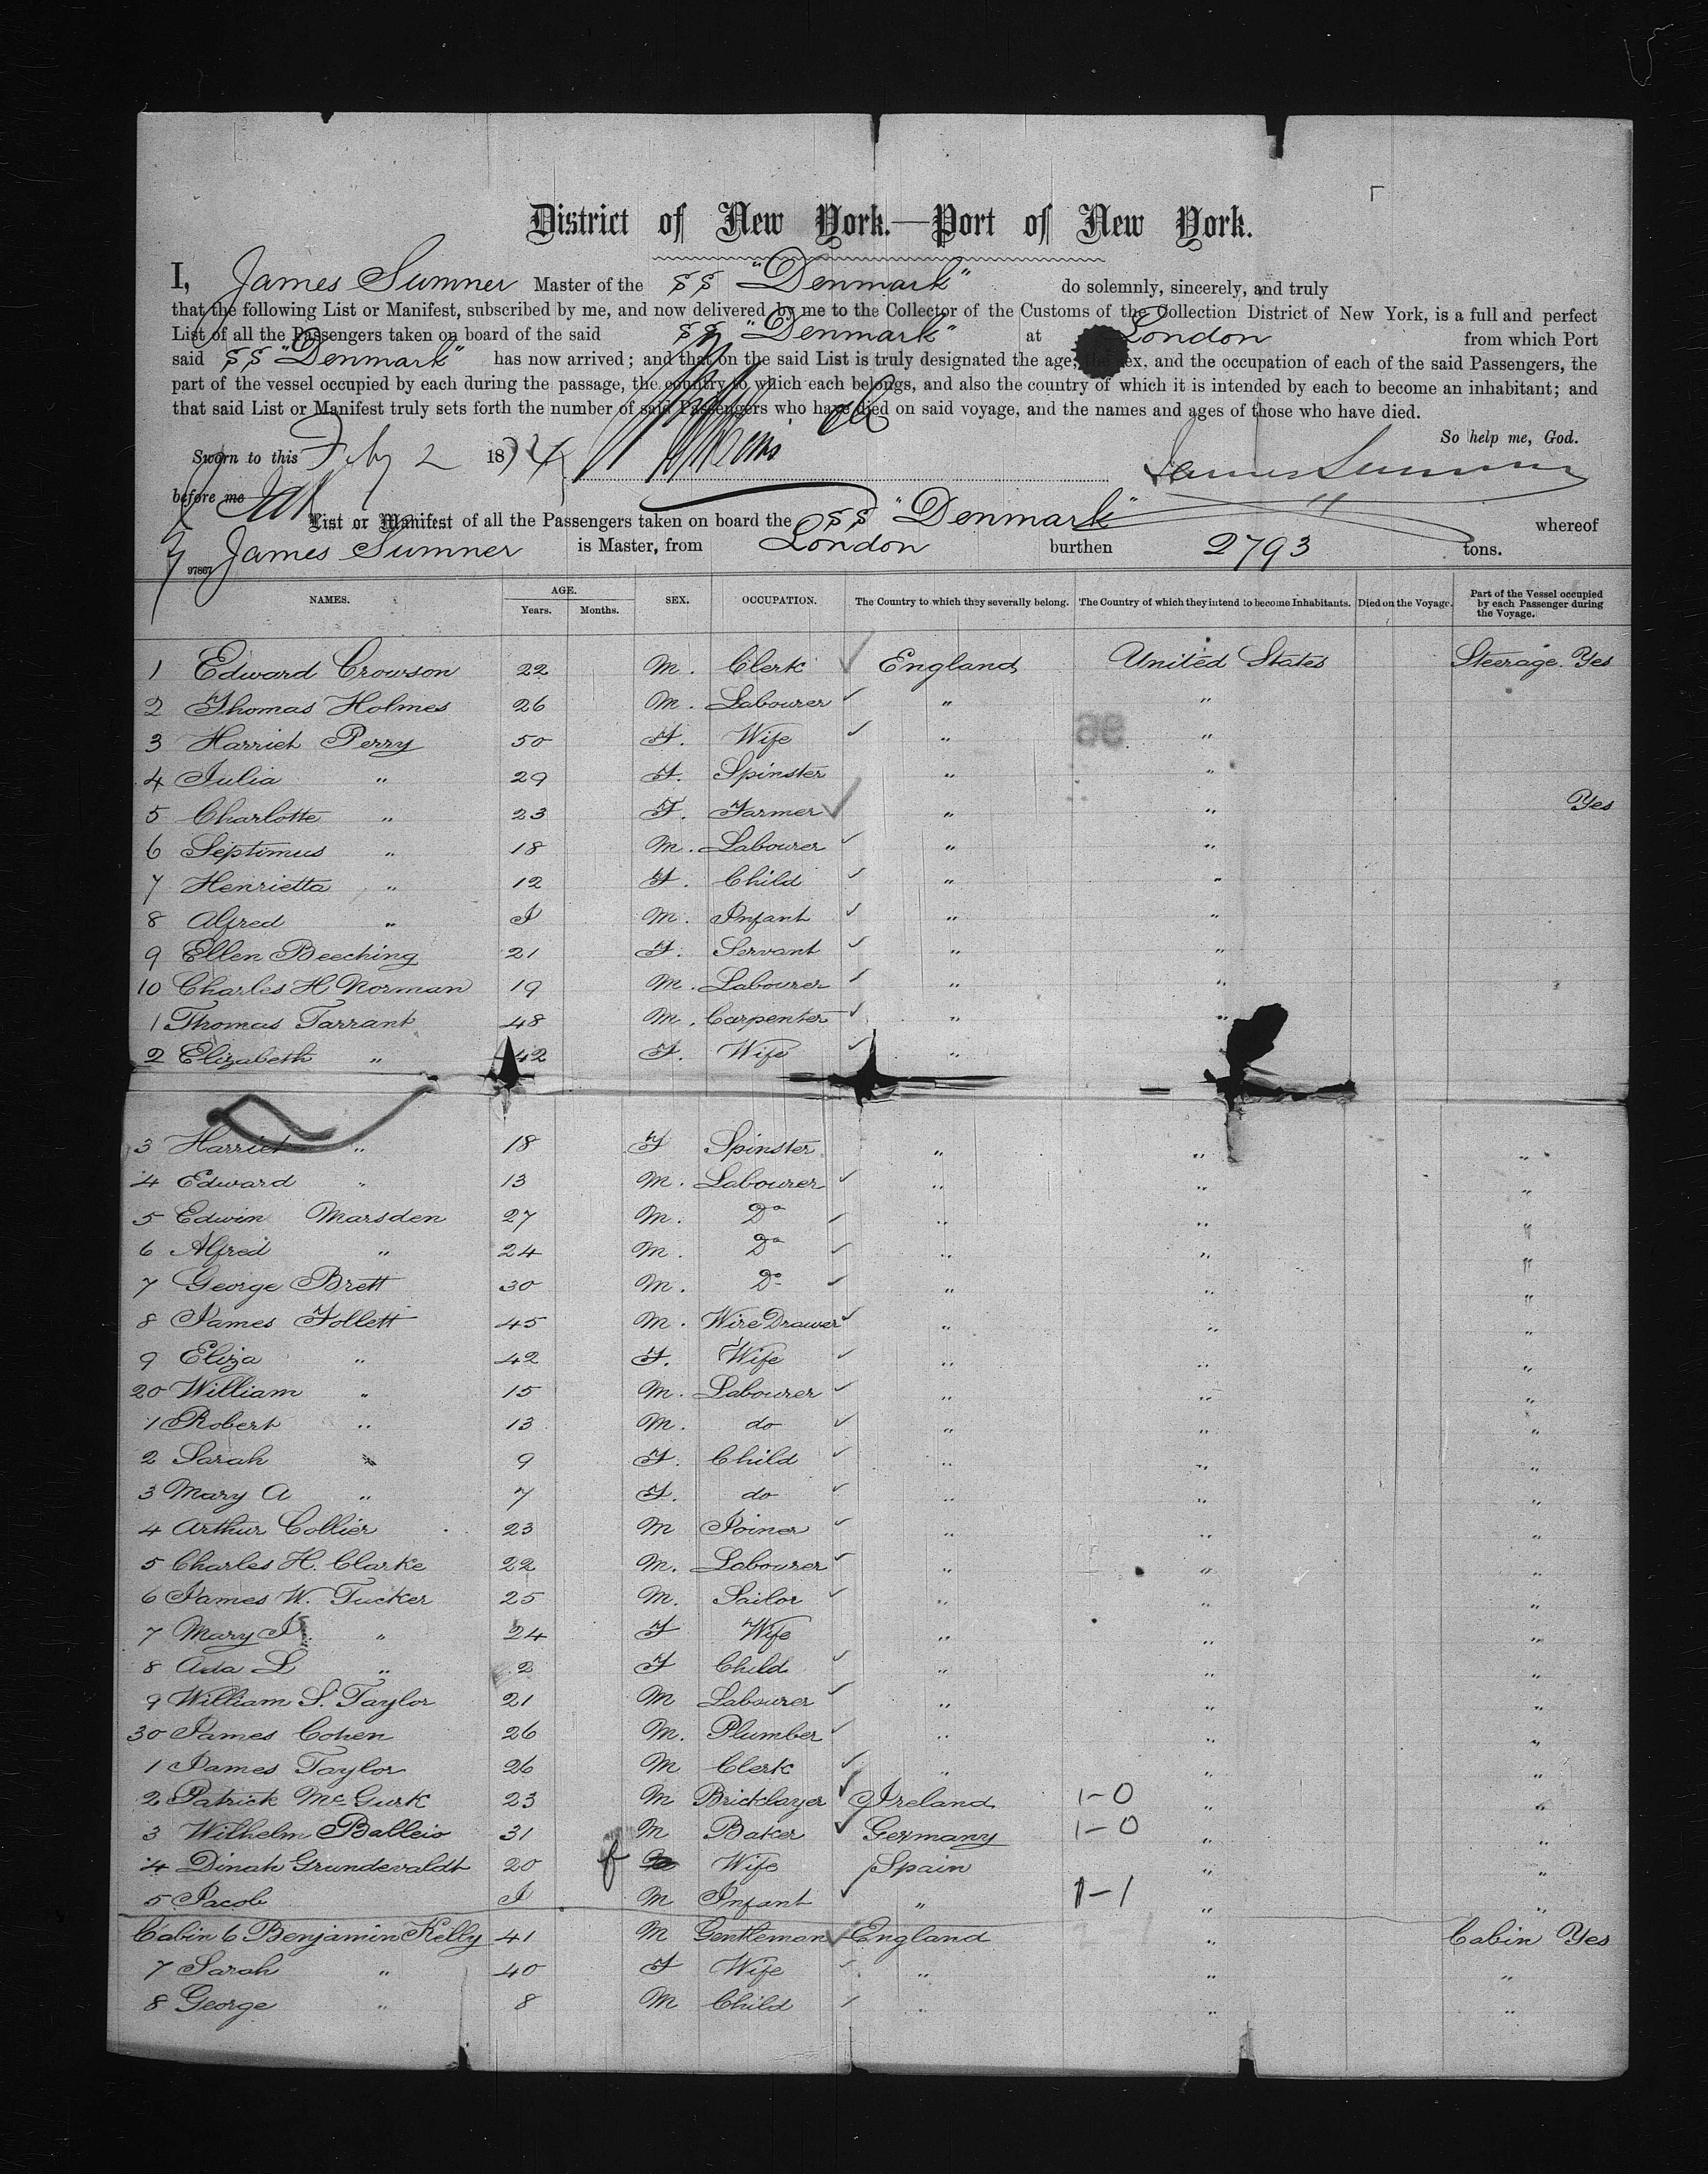 District of New York.—Port of New York.
I, James Sumner Master of the SS "Denmark" do solemnly, sincerely, and truly
that the following List or Manifest, subscribed by me, and now delivered by me to the Collector of the Customs of the Collection District of New York, is a full and perfect
List of all the Passengers taken on board of the said SS "Denmark" at London from which Port
said SS "Denmark" has now arrived; and that on the said List is truly designated the age, the sex, and the occupation of each of the said Passengers, the
part of the vessel occupied by each during the passage, the country to which each belongs, and also the country of which it is intended by each to become an inhabitant; and
that said List or Manifest truly sets forth the number of said Passengers who have died on said voyage, and the names and ages of those who have died.
So help me, God.
Sworn to this Feby 2 1874 James Sumner
before me
List or Manifest of all the Passengers taken on board the SS "Denmark" whereof
James Sumner is Master, from London burthen 2793 tons.
97867
NAMES. AGE. Years. Months. SEX. OCCUPATION. The Country to which they severally belong. The Country of which they intend to become Inhabitants. Died on the Voyage. Part of the Vessel occupied by each Passenger during the Voyage.
1 Edward Crowson 22 M. Clerk England United States Steerage. Yes
2 Thomas Holmes 26 M. Labourer " "
3 Harriet Perry 50 F. Wife " "
4 Julia " 29 F. Spinster " "
5 Charlotte " 23 F. Farmer " " Yes
6 Septimus " 18 M. Labourer " "
7 Henrietta " 12 F. Child " "
8 Alfred " I M. Infant " "
9 Ellen Beeching 21 F. Servant " "
10 Charles H Norman 19 M. Labourer " "
1 Thomas Tarrant 48 M. Carpenter " "
2 Elizabeth " 42 F. Wife "
3 Harriet " 18 F Spinster " " "
4 Edward " 13 M. Labourer " " "
5 Edwin Marsden 27 M. Do " " "
6 Alfred " 24 M. Do " " "
7 George Brett 30 M. Do " " "
8 James Follett 45 M. Wire Drawer " " "
9 Eliza " 42 F. Wife " " "
20 William " 15 M. Labourer " " "
1 Robert " 13 M. do " " "
2 Sarah " 9 F. Child " " "
3 Mary A " 7 F. do " " "
4 Arthur Collier 23 M Joiner " " "
5 Charles H. Clarke 22 M. Labourer " " "
6 James W. Tucker 25 M. Sailor " " "
7 Mary J " 24 F Wife " " "
8 Ada L " 2 F Child " " "
9 William S. Taylor 21 M Labourer " " "
30 James Cohen 26 M. Plumber " " "
1 James Taylor 26 M Clerk " " "
2 Patrick McGurk 23 M Bricklayer Ireland 1-0 " "
3 Wilhelm Balleio 31 M Baker Germany 1-0 " "
4 Dinah Grundevaldt 20 f Wife Spain " "
5 Jacob I M Infant " 1-1 " "
Cabin 6 Benjamin Kelly 41 M Gentleman England " Cabin Yes
7 Sarah " 40 F Wife " " "
8 George " 8 M Child " " "